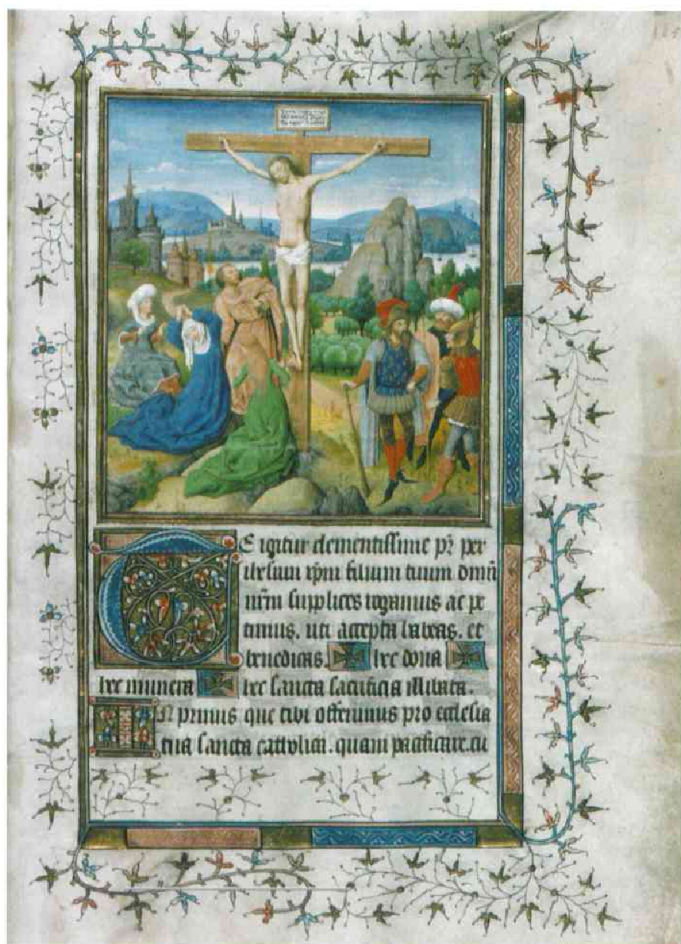 Te igitur clementissime pr per
ihesum xpm filium tuum dmu
nrm supplices rogamus ac pe
timus. uti accepta habeas. et
benedicas. hec dona
hec munera hec sancta sacrificia illibata.
In primis que tibi offerimus pro ecclesia
tua sancta catholica. quam pacificare. cu